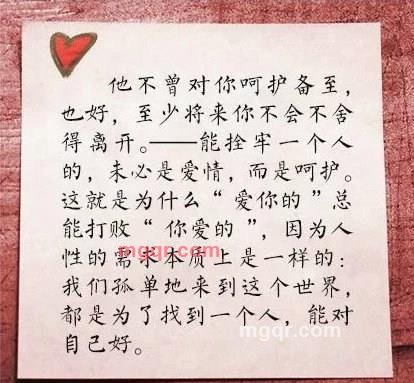 他不曾对你呵护备至，
也好，至少将来你不会不舍
得离开。——能拴牢一个人
的，未必是爱情，而是呵护。
这就是为什么“爱你的”总
能打败“你爱的”，因为人
性的需求本质上是一样的：
mgqr.com
我们孤单地来到这个世界，
都是为了找到一个人，能对
mgqr.com
自己好。